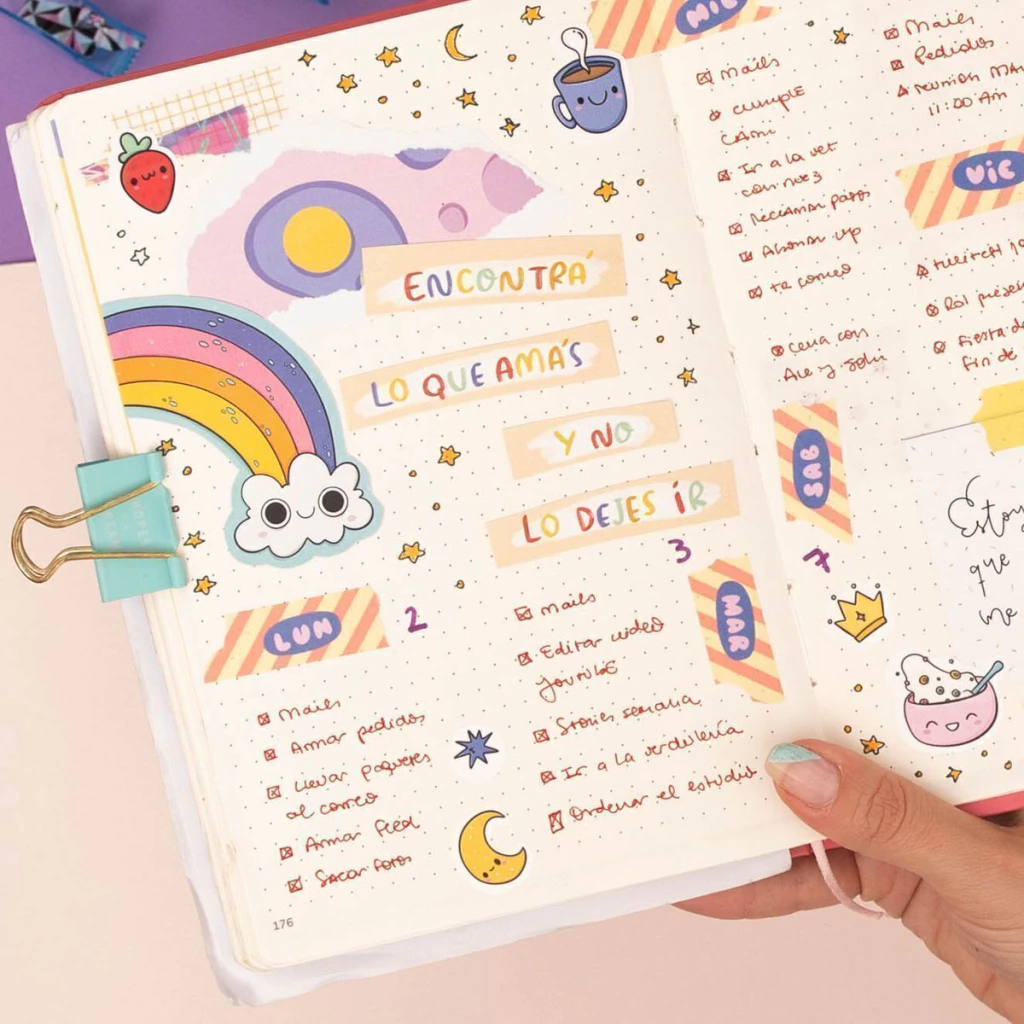 ENCONTRÁ
LO QUE AMÁS
Y NO
LO DEJES ÍR
LUN
2
Mails
Armar pedidos
Llevar paquetes
al correo
Armar feed
Sacar fotos
176
3
MAR
Mails
Editar video
youtube
Stories semana
Ir a la verdulería
Ordenar el estudio
MIE
Mails
CUMPLE
CAMI
Ir a la vet
con
Reclamar pagos
Ahorrar
correo
Cena con
Ale y
Mails
Pedidos
reunión
11:00 Am
VIE
Fiesta de
fin de
SAB
7
Estoy
que
me